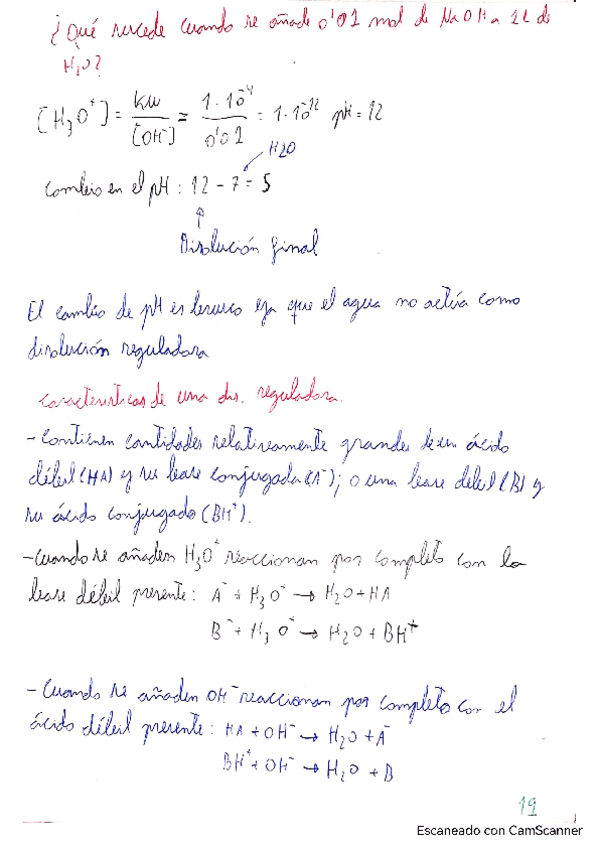 ¿Qué sucede cuando se añade 0'01 mol de NaOH a 1L de
H₂O?
[H₃O⁺] = Kw/[OH⁻] = 1·10⁻¹⁴/0'01 = 1·10⁻¹² pH = 12
H2O
Cambio en el pH : 12 - 7 = 5
Disolución final
El cambio de pH es brusco ya que el agua no actúa como
disolución reguladora
Características de una dis. reguladora.
- Contienen cantidades relativamente grandes de un ácido
débil (HA) y su base conjugada (A⁻); o una base débil (B) y
su ácido conjugado (BH⁺).
- Cuando se añaden H₃O⁺ reaccionan por completo con la
base débil presente: A⁻ + H₃O⁺ → H₂O + HA
B⁻ + H₃O⁺ → H₂O + BH⁺
- Cuando se añaden OH⁻ reaccionan por completo con el
ácido débil presente: HA + OH⁻ → H₂O + A⁻
BH⁺ + OH⁻ → H₂O + B
19
Escaneado con CamScanner